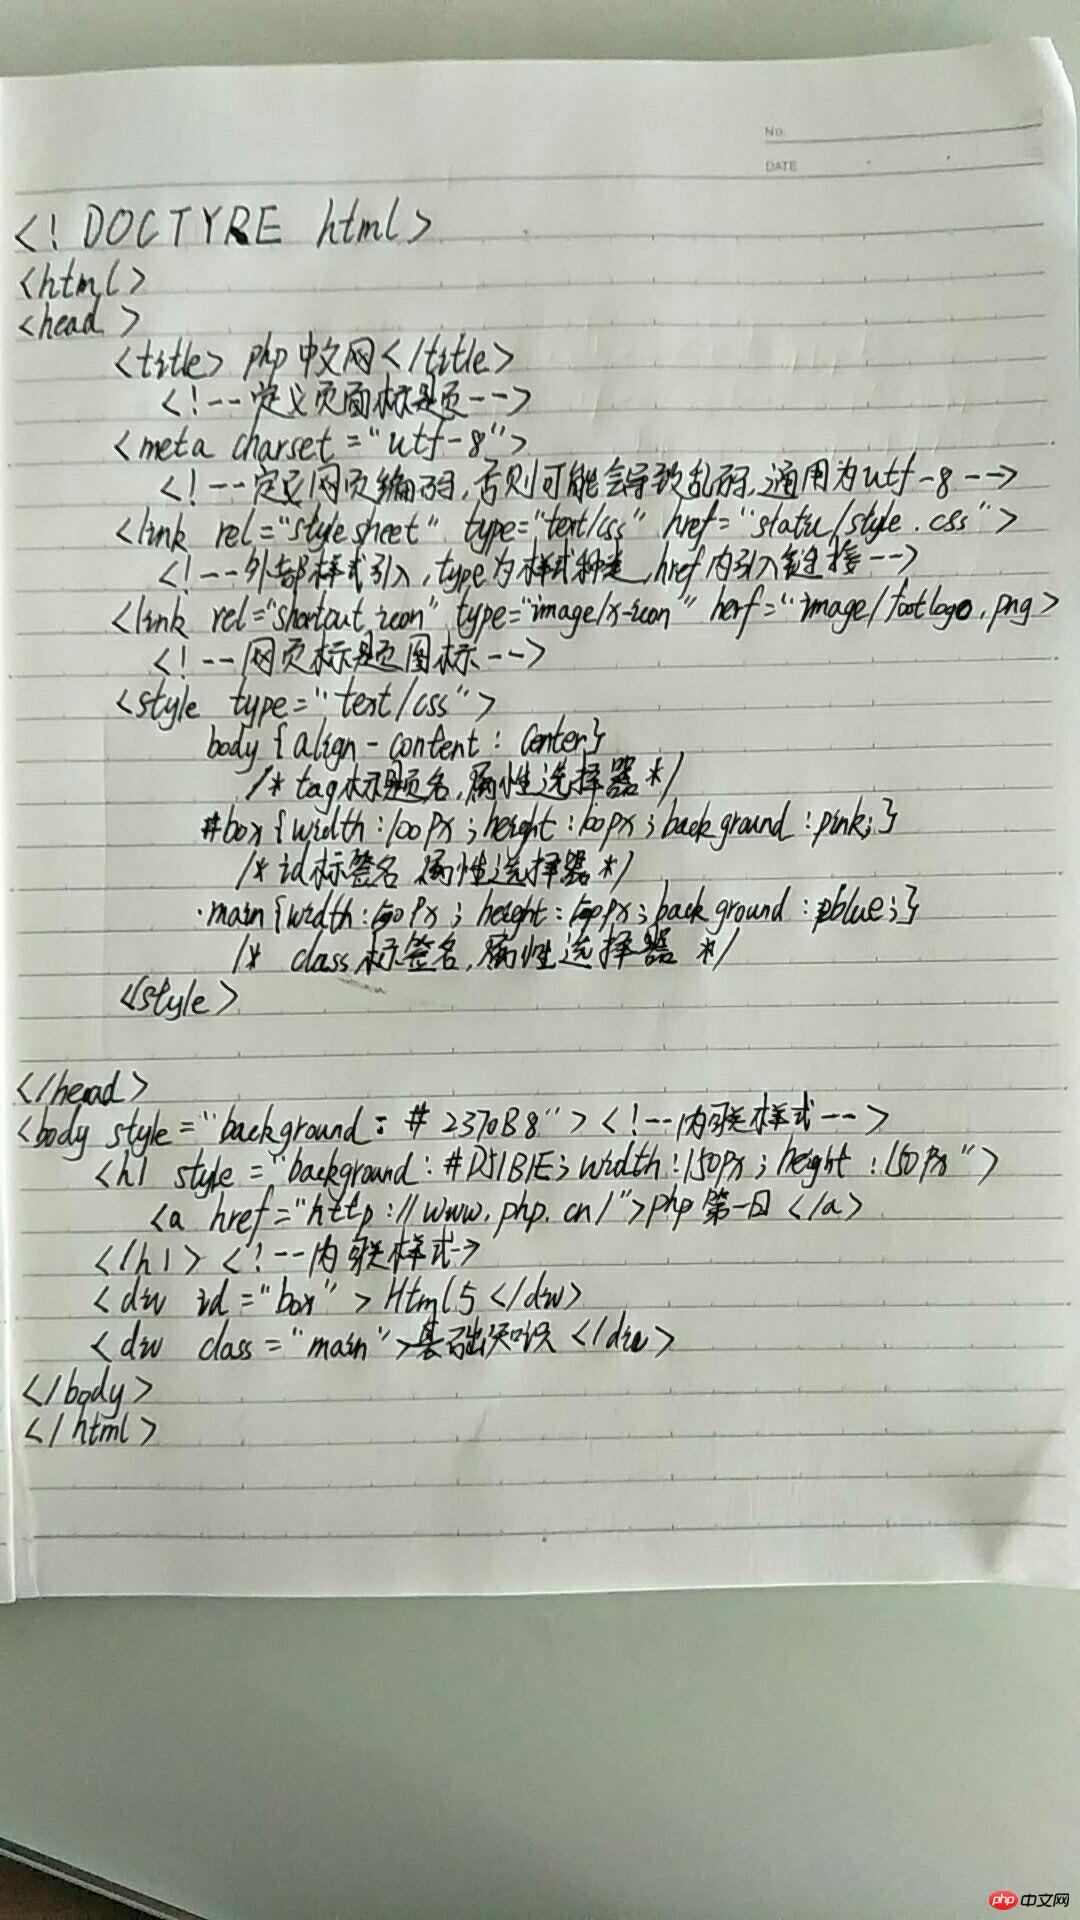 No.
DATE
<! DOCTYRE html>
<html>
<head >
<title> php 中文网</title>
<!--定义页面标题页-->
<meta charset="utf-8">
<!--定义网页编码,否则可能会导致乱码,通用为utf-8-->
<link rel="stylesheet" type="text/css" href="statu/style.css">
<!--外部样式引入,type为样式种类,href内引入链接-->
<link rel="shortcut icon" type="image/x-icon" herf="image/footlogo.png>
<!--网页标题图标-->
<style type="text/css">
body{align-content: center}
/* tag标题名,属性选择器*/
#box{width:100px;height:100px;background:pink;}
/*id标签名 属性选择器*/
.main{width:50px;height:50px;background:blue;}
/* class标签名,属性选择器 */
</style>
</head>
<body style="background:#2370B8"><!--内联样式-->
<h1 style="background:#D51B1E;width:150px;height:150px">
<a href="http://www.php.cn/">php第一日</a>
</h1><!--内联样式->
<div id="box">Html5</div>
<div class="main">基础知识</div>
</body>
</html>
php 中文网